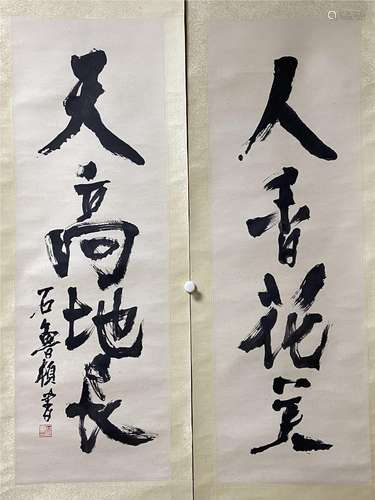 人香花笑
天高地长
石鲁顿书